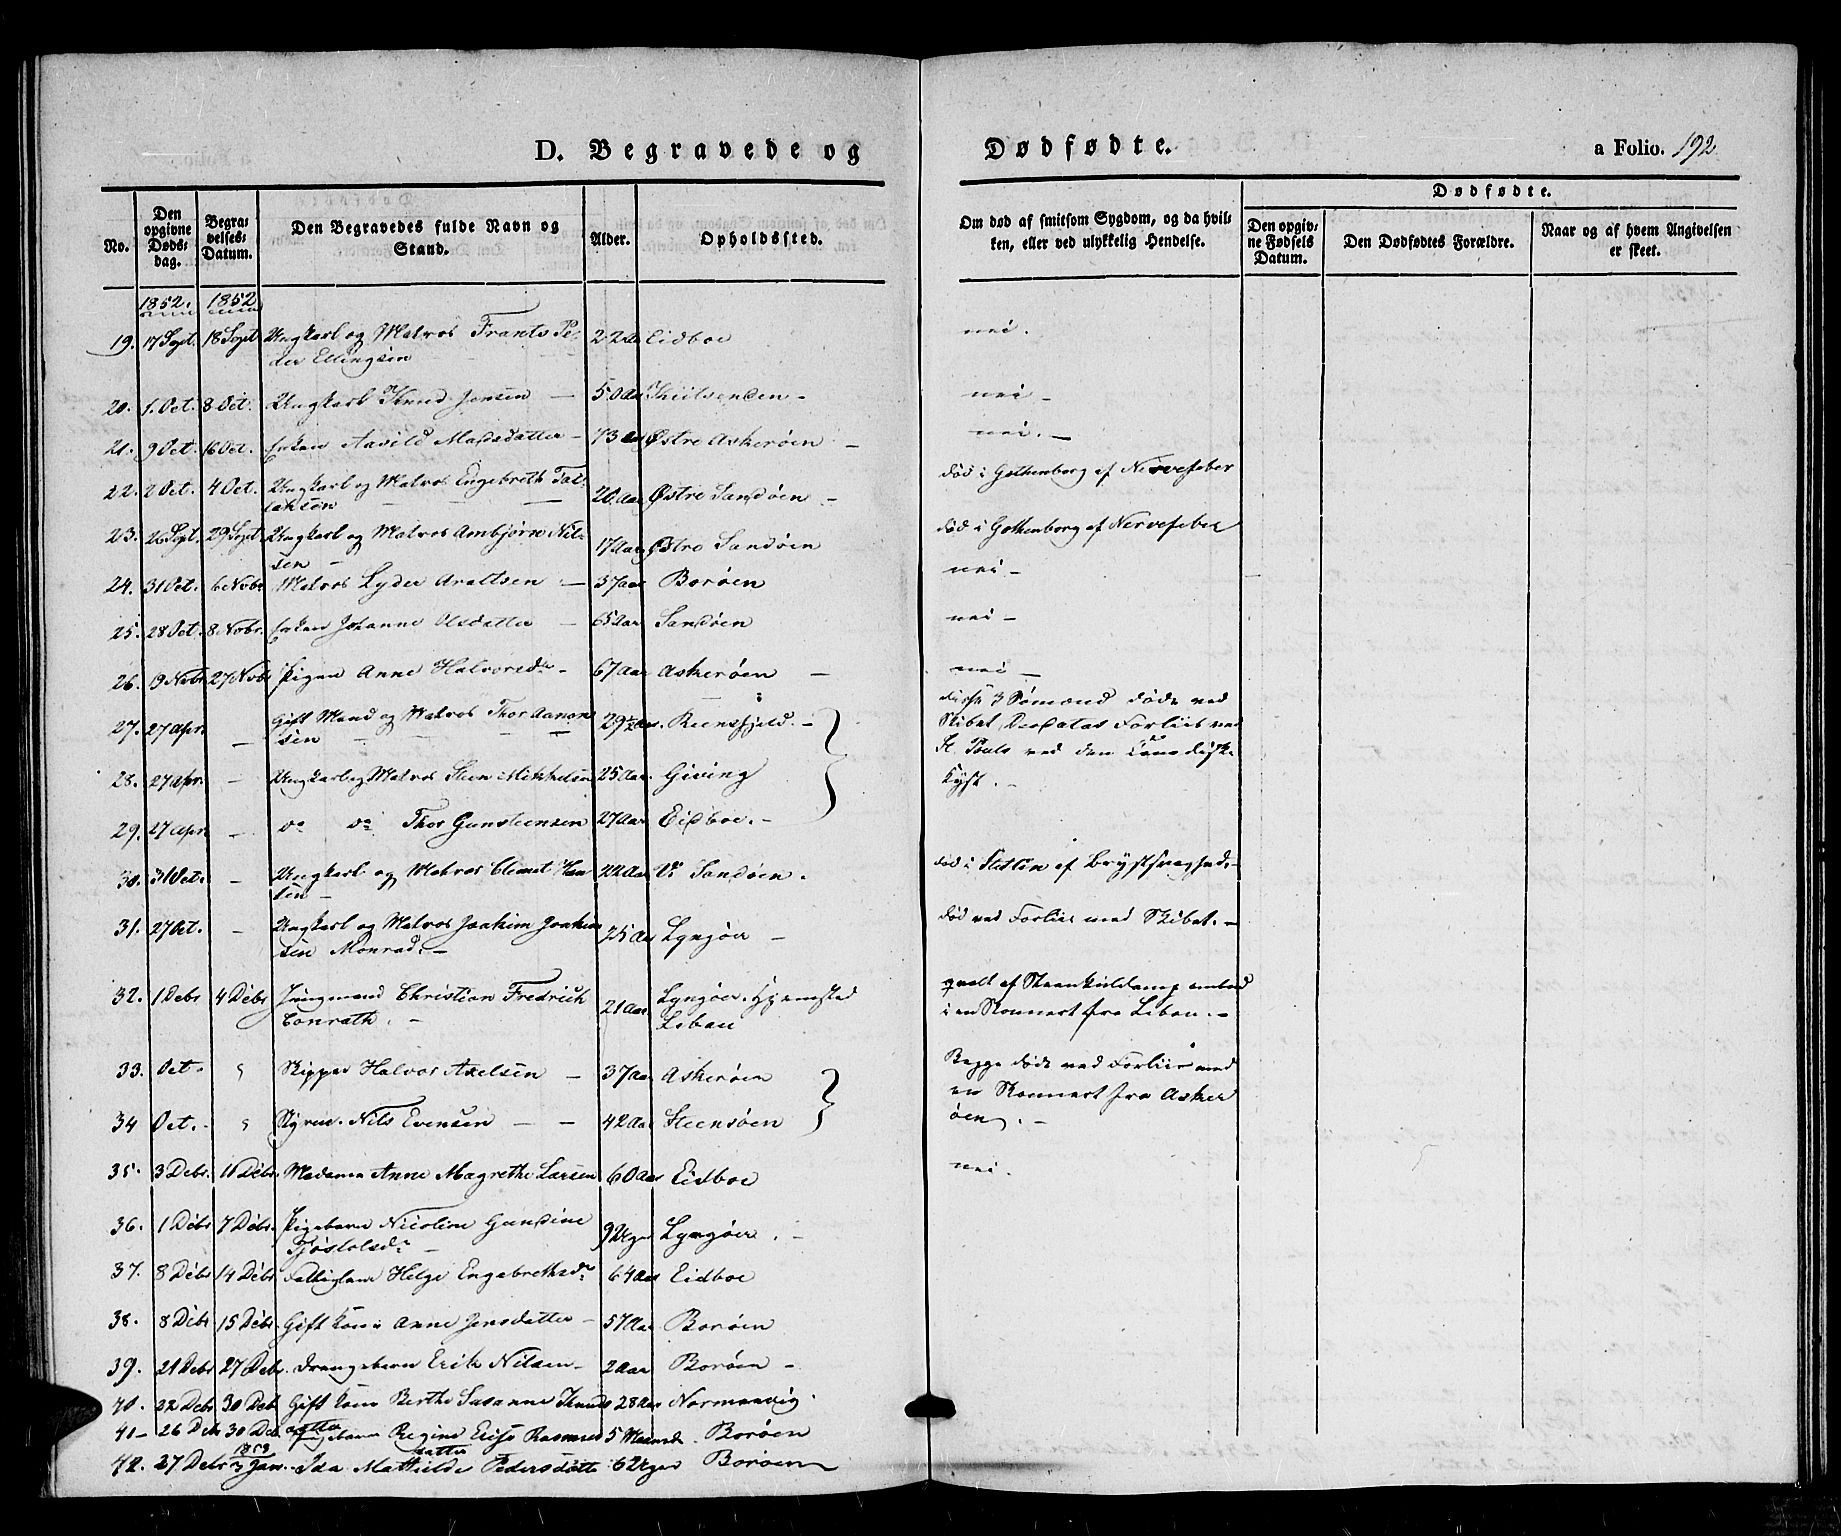 D. Begravede og Dødfødte. a Folio. 192
No. Den opgivne Døds-dag. Begra-velses-Datum. Den Begravedes fulde Navn og Stand. Alder. Opholdssted. Om død af smitsom Sygdom, og da hvil-ken, eller ved ulykkelig Hendelse. Dødfødte. Den opgiv-ne Fødsels Datum. Den Dødfødtes Forældre. Naar og af hvem Angivelsen er skeet.
1852. 1852
19. 17 Sept. 18 Sept Ungkarl og Matros Frants Pe- 22 Aar Eidboe nei.
der Ellingsen
20. 1. Oct. 8 Oct. Ungkarl Knud Jensen — 50 Aar nei —
21. 9 Oct. 16 Oct. Enken Aavild Madsdatter — 73 Aar Østre Askerøen — nei. —
22. 2 Oct. 4 Oct. Ungkarl og Matros Engebreth Tal- 20 Aar Østre Sandøen — død i Gothenborg af Nervefeber
laksen —
23. 26 Sept. 29 Sept Ungkarl og Matros Ambjørn Nil- 17 Aar Østre Sandøen død i Gothenborg af Nervefeber
sen —
24. 31 Oct. 6 Novbr Matros Lyder Araltsen — 37 Aar Borøen nei —
25. 28 Oct. 8 Novbr. Enken Johanne Olsdatter — 65 Aar Sandøen nei —
26. 19 Novbr. 27 Novbr Pigen Anne Halvorsdr — 67 Aar Askerøen — nei —
27. 27 Apr. — Gift Mand og Matros Thor Aanon 29½ Aar. — disse 3 Sømænd døde ved
sen — Skibet Deodatas Forliis ved
St. Pauls ved den Canadiske
28. 27 Apr. — Ungkarl og Matros Steen Mikkelsen 25 Aar. Giving Kyst. —
29. 27 Apr. — do do Thor Gunsteensen 27 Aar Eidboe. —
30. 31 Oct. — Ungkarl og Matros Clemet Han 22 Aar V. Sandøen. død i Stettin af Brystsvaghed. —
sen —
31. 27 Oct. — Ungkarl og Matros Joakim Joakim 25 Aar Lyngøer — død ved Forliis med Skibet. —
sen Monrad. —
32. 1 Debr 4 Debr Jungmand Christian Fredrich 21 Aar Lyngøer. Hjemsted qvalt af Steenkuldamp ombord
Conrath. — Libau i en Skonnert fra Libau. —
33. Oct. " Skipper Halvor Axelsen — 37 Aar Askerøen Begge døde ved Forliis med
en Skonnert fra Asker
34 Oct. " Styrm. Nils Evensen — — 42 Aar Steensøen øen. —
35. 3 Debr. 11 Debr. Madame Anne Magrethe Larsen 60 Aar Eidboe nei.
36. 1 Debr 7 Debr. Pigebarn Nicoline Gundine 9 Uger Lyngøer. —
Tjøstolsdr —
37. 8 Debr 14 Debr. Fattiglem Helge Engebrethsdr 64 Aar Eidboe
38. 8 Debr 15 Debr. Gift Kone Anne Jensdatter — 57 Aar Borøen
39. 21 Debr 27 Debr. Drengebarn Erik Nilsen — 2 Aar Borøen —
40. 22 Debr. 30 Deb Gift Kone Berthe Susanne Knuds 28 Aar Normandvig
datter
41 — 26 Debr 30 Deb Pigebarn Regine Elise Rasmus 5 Maaned. Borøen
datter
1853
42. 27 Debr 3 Jan. Ida Mathilde Pedersdatter 6 Uger Borøen